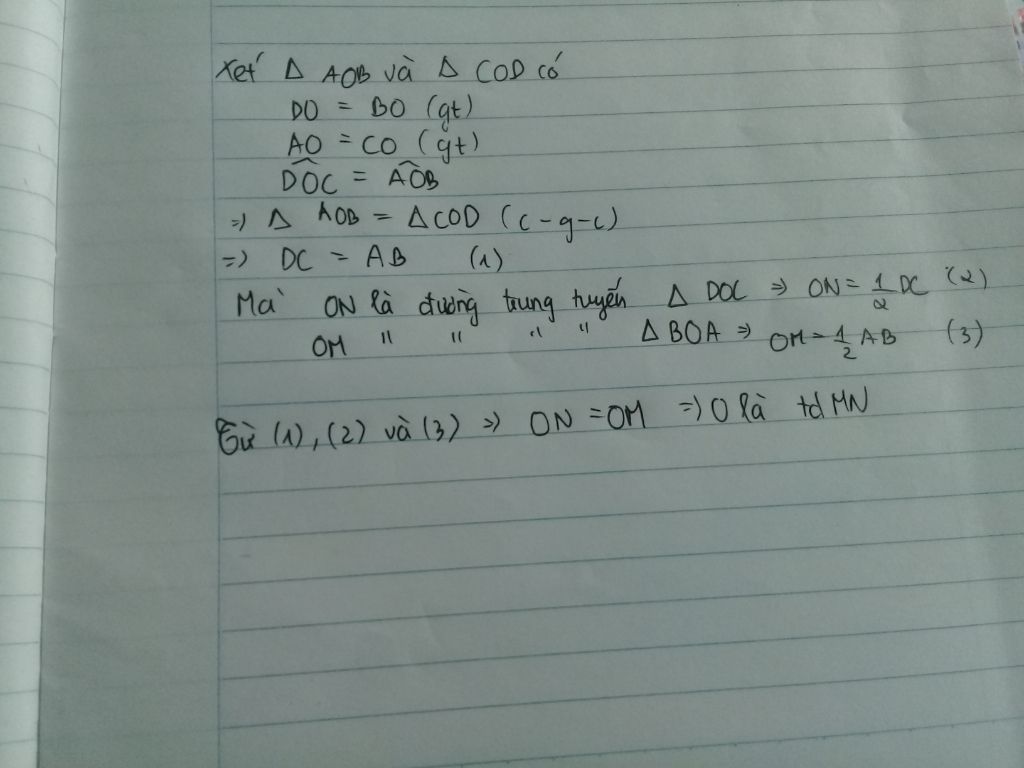 Xét Δ AOB và Δ COD có
DO = BO (gt)
AO = CO (gt)
\widehat{DOC} = \widehat{AOB}
=> Δ AOB = Δ COD (c-g-c)
=> DC = AB (1)
Mà ON là đường trung tuyến Δ DOC => ON = 1/2 DC (2)
OM " " " " Δ BOA => OM = 1/2 AB (3)
Từ (1), (2) và (3) => ON = OM => O là tđ MN